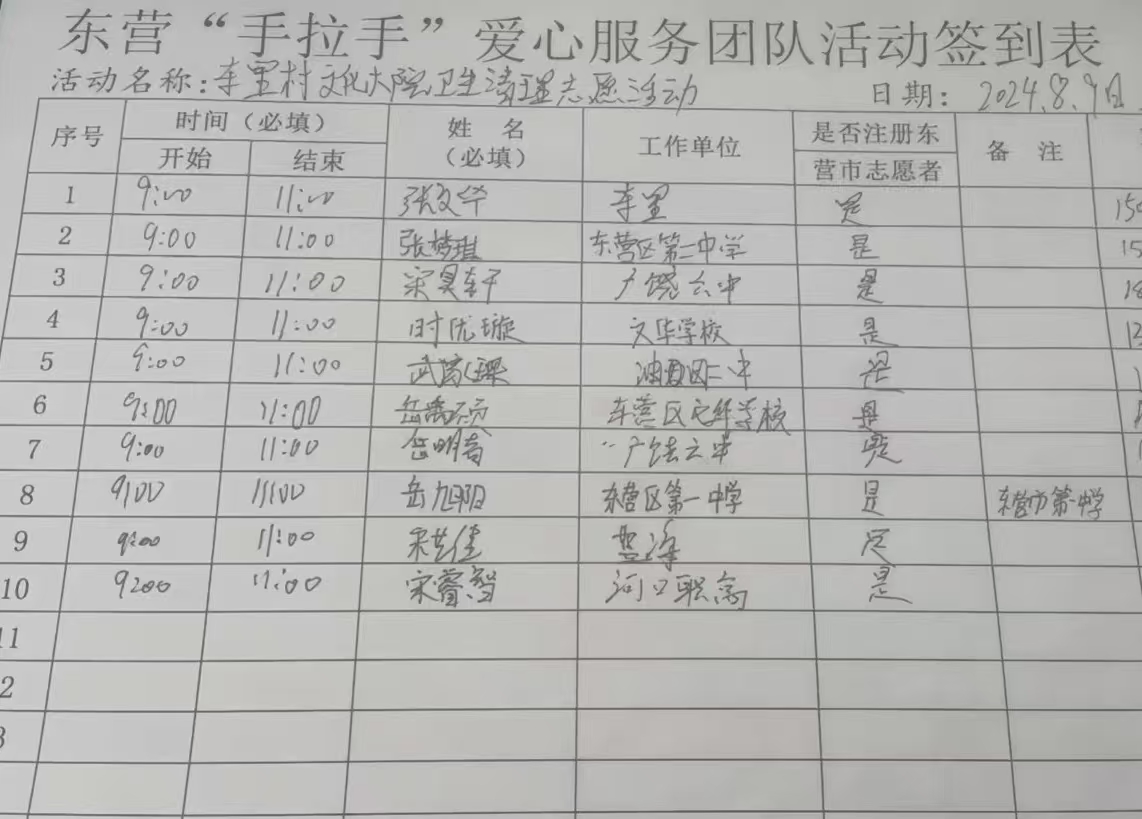 东营“手拉手”爱心服务团队活动签到表
活动名称：车里村文化大院卫生清理志愿活动 日期：2024.8.9日
序号 时间（必填） 姓名（必填） 工作单位 是否注册东营市志愿者 备注
开始 结束
1 9:00 11:00 张文华 车里 是 150
2 9:00 11:00 张梦琪 东营区第一中学 是 15
3 9:00 11:00 宋昊轩 广饶六中 是
4 9:00 11:00 时优璇 文华学校 是
5 9:00 11:00 武 是
6 9:00 11:00 岳禹 东营区文华学校 是
7 9:00 11:00 岳明 是
8 9:00 11:00 岳旭阳 东营区第一中学 是 东营市第一中学
9 9:00 11:00 宋 是
10 9:00 11:00 宋睿智 河口职高 是
11
2
3